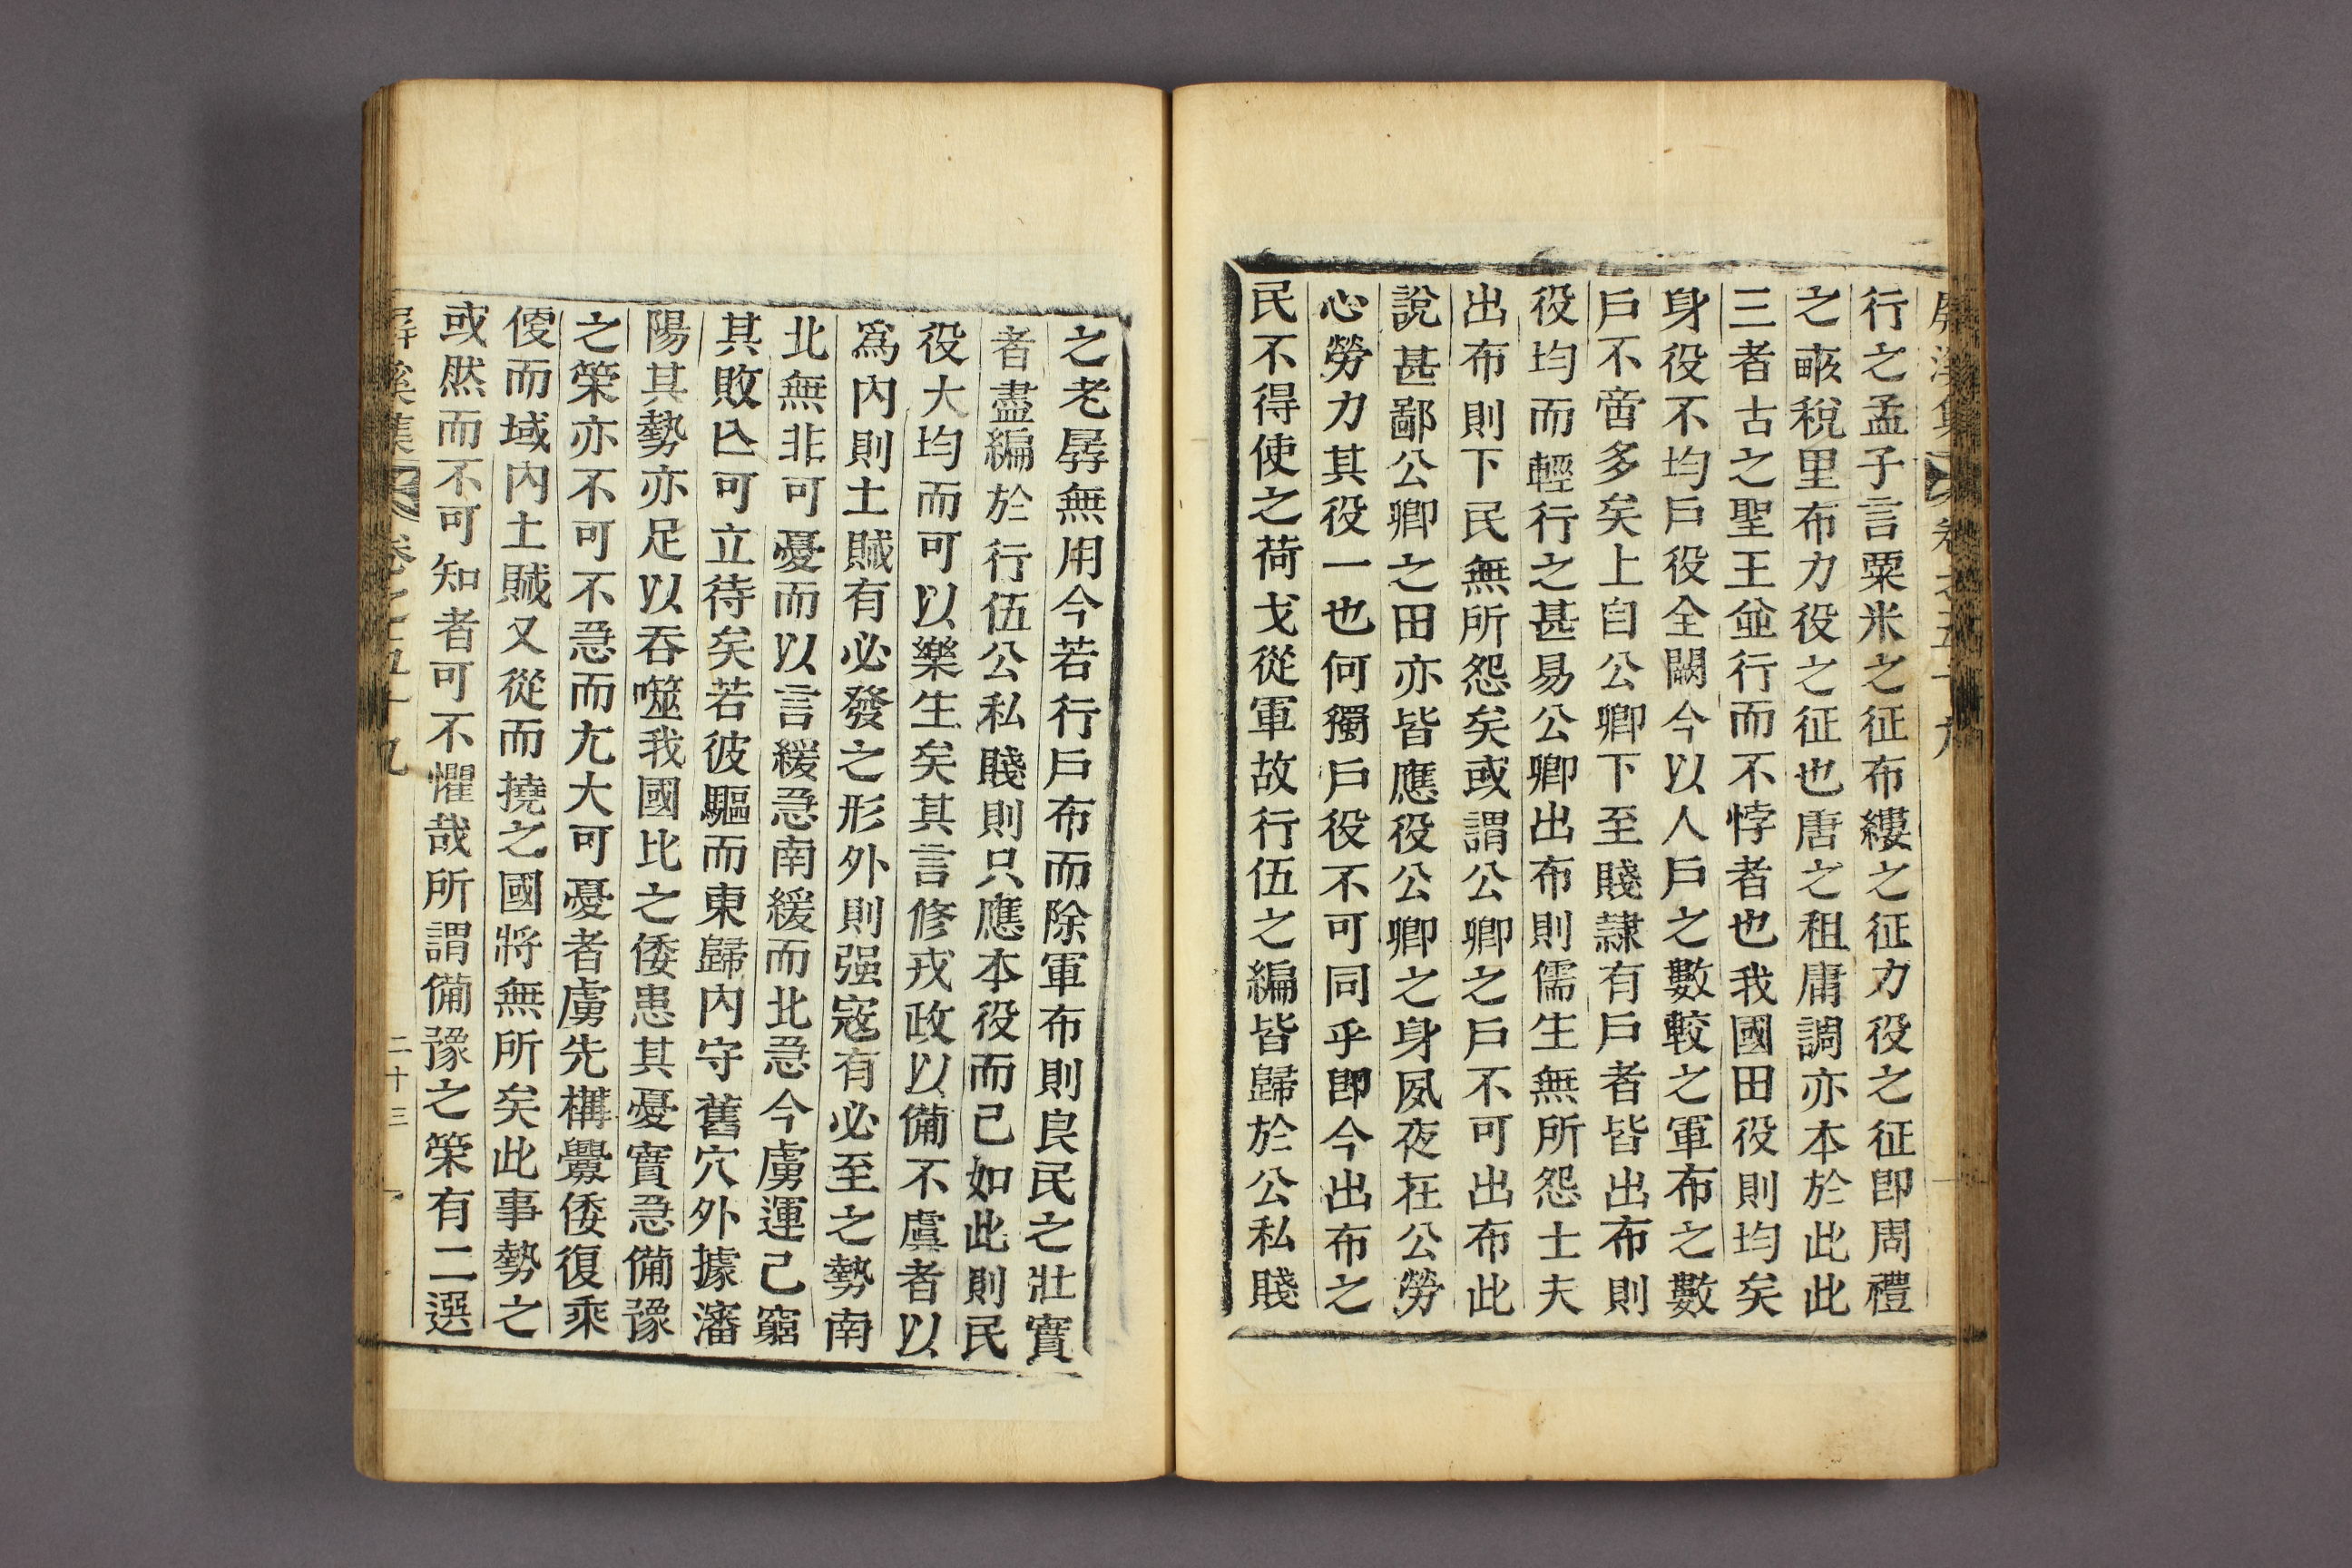 屛溪集 卷之五十九
行之孟子言粟米之征布縷之征力役之征卽周禮
之畞稅里布力役之征也唐之租庸調亦本於此此
三者古之聖王並行而不悖者也我國田役則均矣
身役不均戶役全闕今以人戶之數較之軍布之數
戶不啻多矣上自公卿下至賤隷有戶者皆出布則
役均而輕行之甚易公卿出布則儒生無所怨士夫
出布則下民無所怨矣或謂公卿之戶不可出布此
說甚鄙公卿之田亦皆應役公卿之身夙夜在公勞
心勞力其役一也何獨戶役不可同乎卽今出布之
民不得使之荷戈從軍故行伍之編皆歸於公私賤
之老孱無用今若行戶布而除軍布則良民之壯實
者盡編於行伍公私賤則只應本役而已如此則民
役大均而可以樂生矣其言修戎政以備不虞者以
爲內則土賊有必發之形外則强寇有必至之勢南
北無非可憂而以言緩急南緩而北急今虜運已窮
其敗亾可立待矣若彼驅而東歸內守舊穴外據瀋
陽其勢亦足以吞噬我國比之倭患其憂實急備豫
之策亦不可不急而尤大可憂者虜先構釁倭復乘
便而域內土賊又從而撓之國將無所矣此事勢之
或然而不可知者可不懼哉所謂備豫之策有二選
屛溪集 卷之五十九 二十三